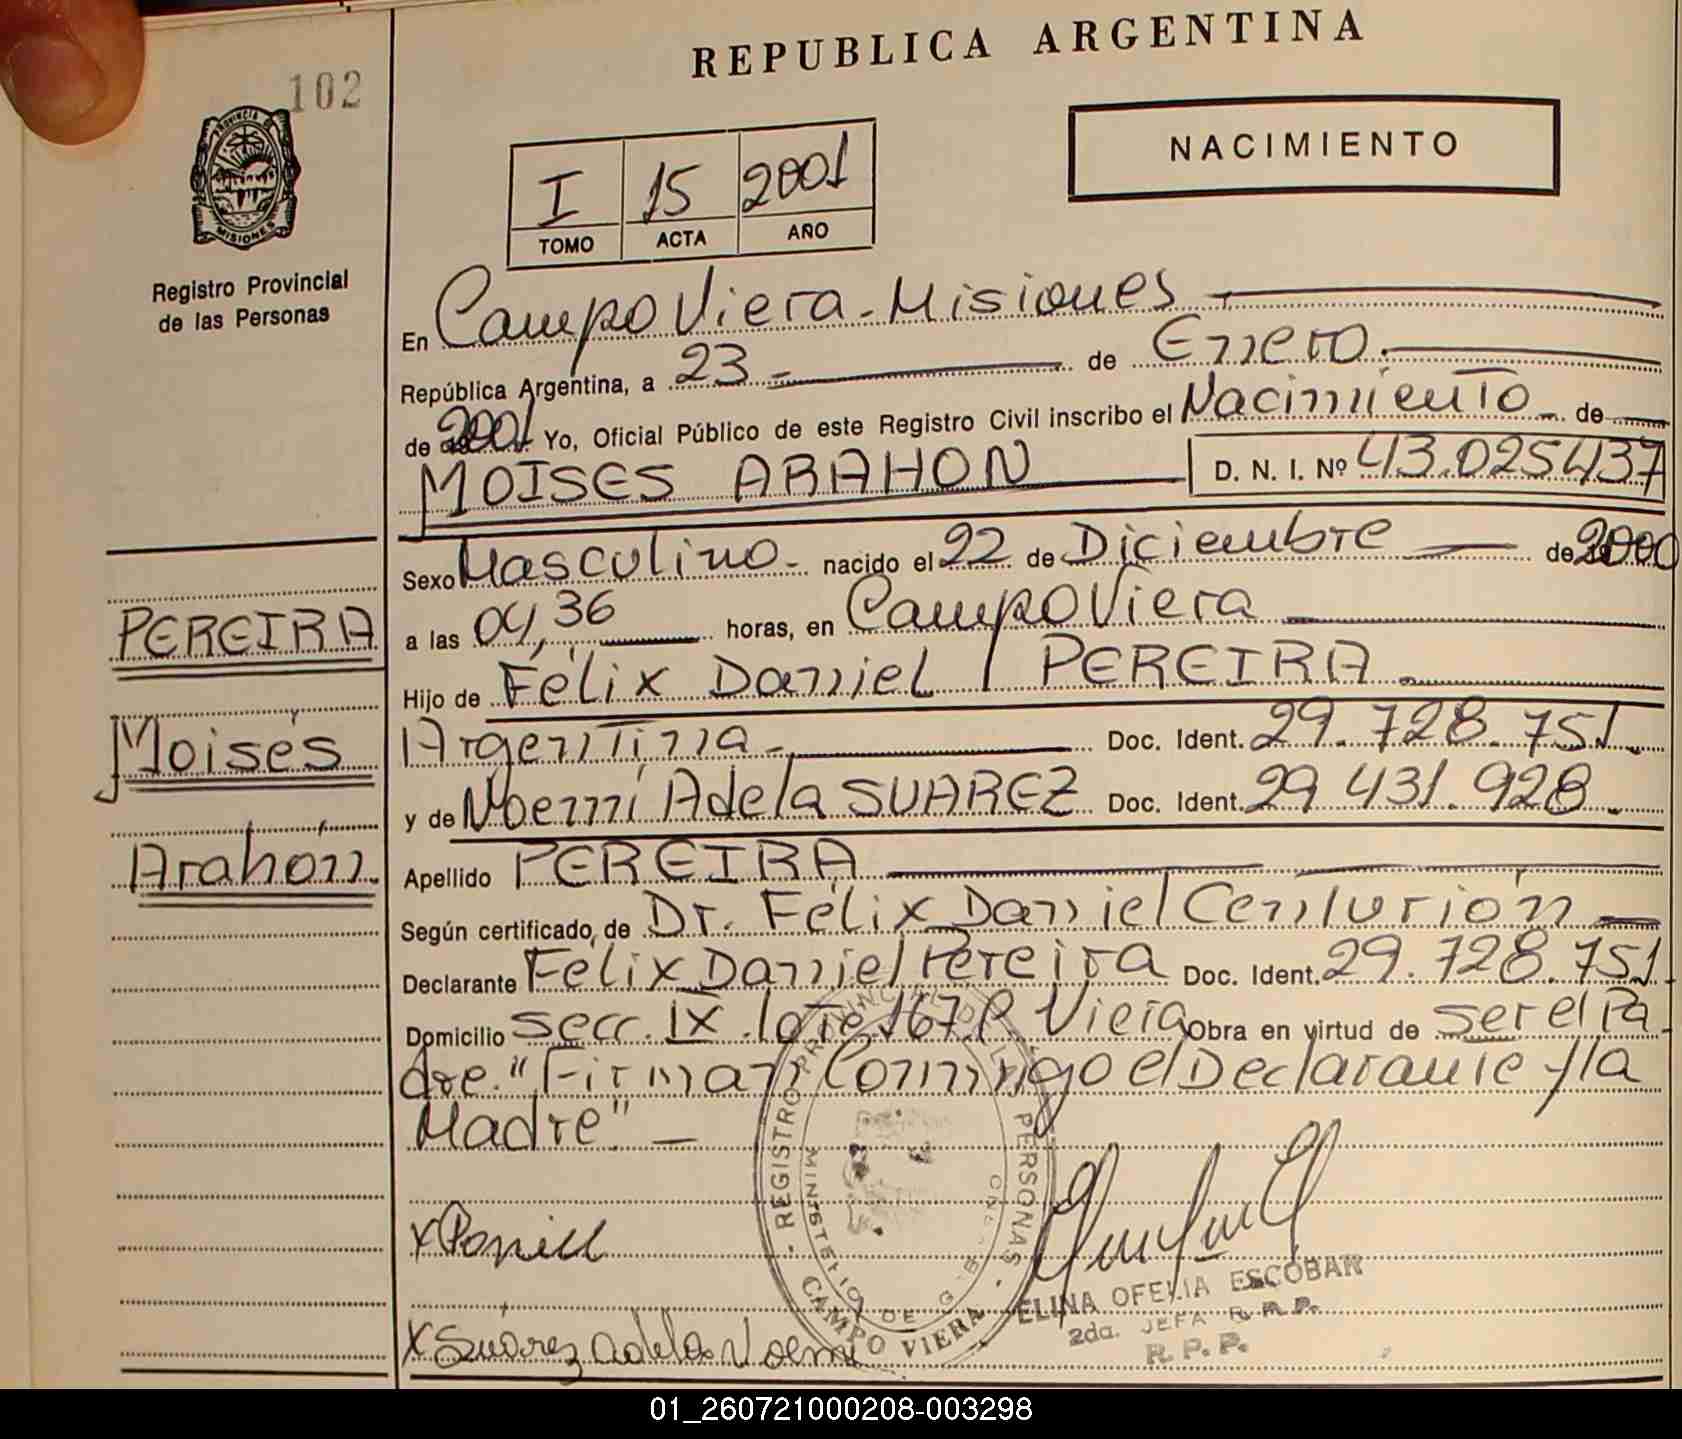 REPUBLICA ARGENTINA
102
PROVINCIA DE
MISIONES
Registro Provincial
de las Personas
NACIMIENTO
I 15 2001
TOMO ACTA AÑO
En Campo Viera - Misiones
República Argentina, a 23 - de Enero.
de 2001 Yo, Oficial Público de este Registro Civil inscribo el Nacimiento - de
MOISES ARAHON D. N. I. Nº 43.025437
Sexo Masculino - nacido el 22 de Diciembre de 2000
a las 04,36 horas, en Campo Viera
Hijo de Félix Daniel PEREIRA.
Argentina - Doc. Ident. 29.728.751.
y de Noemí Adela SUAREZ Doc. Ident. 29 431.928.
Apellido PEREIRA
Según certificado de Dr. Félix Daniel Centurión
Declarante Félix Daniel Pereira Doc. Ident. 29.728.751.
Domicilio secc. IX lote 167 C Viera Obra en virtud de ser el Pa
dre. "Firman Conmigo el Declarante y la
Madre". -
PEREIRA
Moisés
Arahón.
REGISTRO PROVINCIAL DE LAS PERSONAS
MINISTERIO DE
CAMPO VIERA
x Suárez adela Noemi
ELINA OFELIA ESCOBAR
2da. JEFA R.R.P.
R.P.P.
01_260721000208-003298